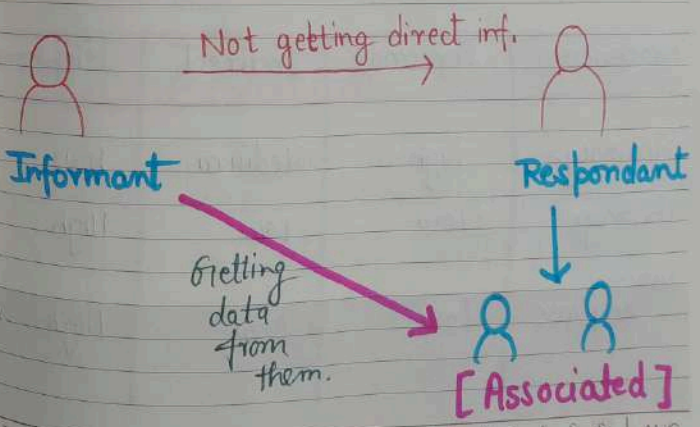 Not getting direct inf.
Informant
Respondant
Getting
data
from
them.
[Associated]